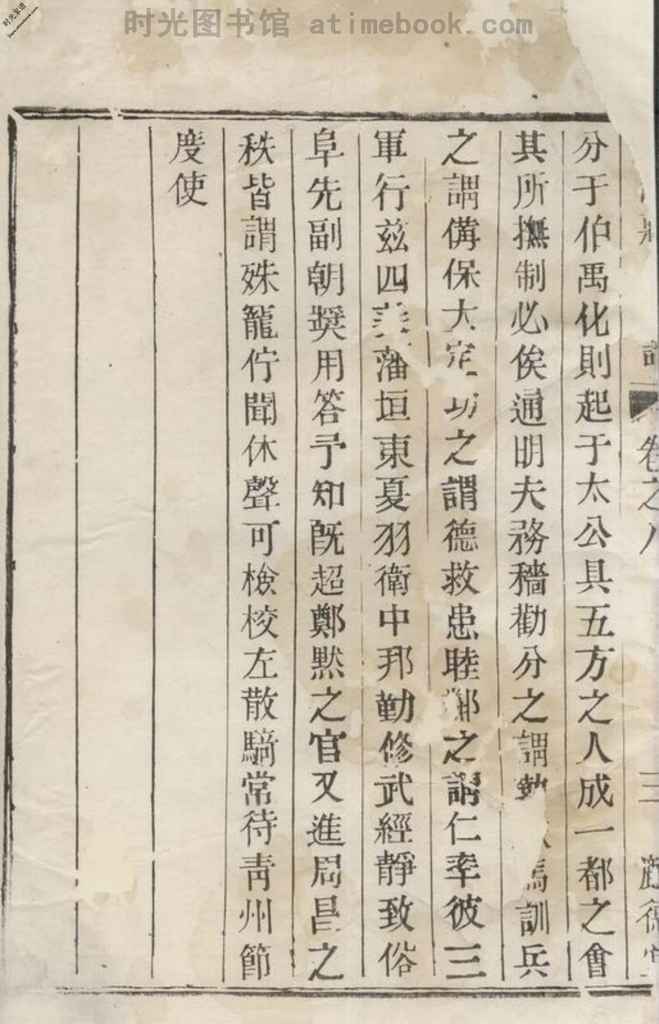 时光图书馆 atimebook.com
卷之八
三
分于伯禹化則起于太公具五方之人成一都之會
其所撫制必俟通明夫務穡勸分之謂勤馬訓兵
之謂備保大定功之謂德救患睦鄰之謂仁率彼三
軍行兹四美藩垣東夏羽衛中邦勤修武經靜致俗
阜先副朝奬用答予知旣超鄭黙之官又進周昌之
秩皆謂殊寵佇聞休聲可檢校左散騎常待青州節
度使